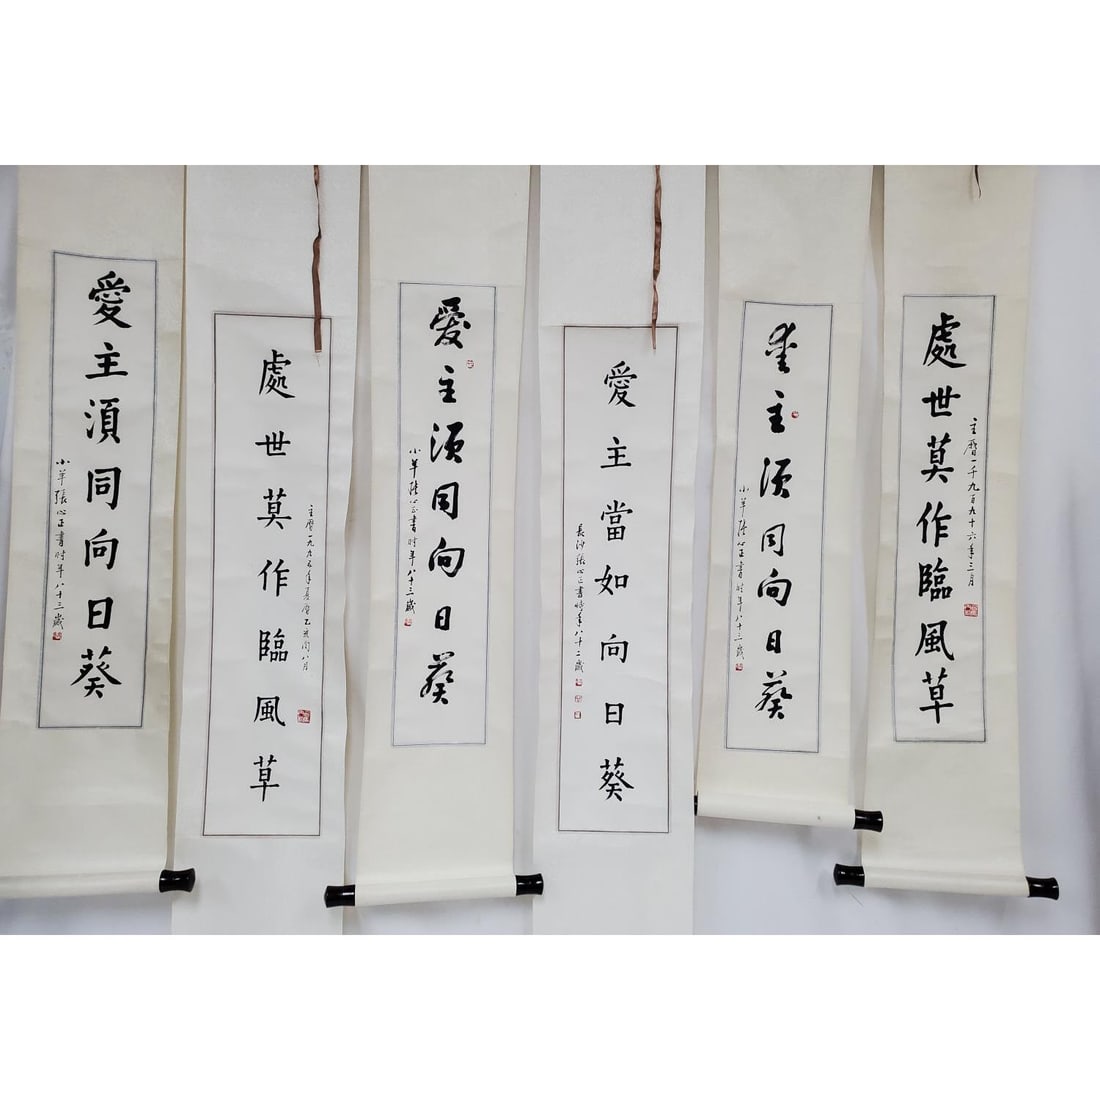 愛主須同向日葵
小羊張心正書時年八十三歲
處世莫作臨風草
主曆一九九五年夏曆乙亥閏八月
愛主須同向日葵
小羊張心正書時年八十三歲
愛主當如向日葵
長沙張心正書時年八十二歲
愛主須同向日葵
小羊張心正書時年八十三歲
處世莫作臨風草
主曆一千九百九十六年三月